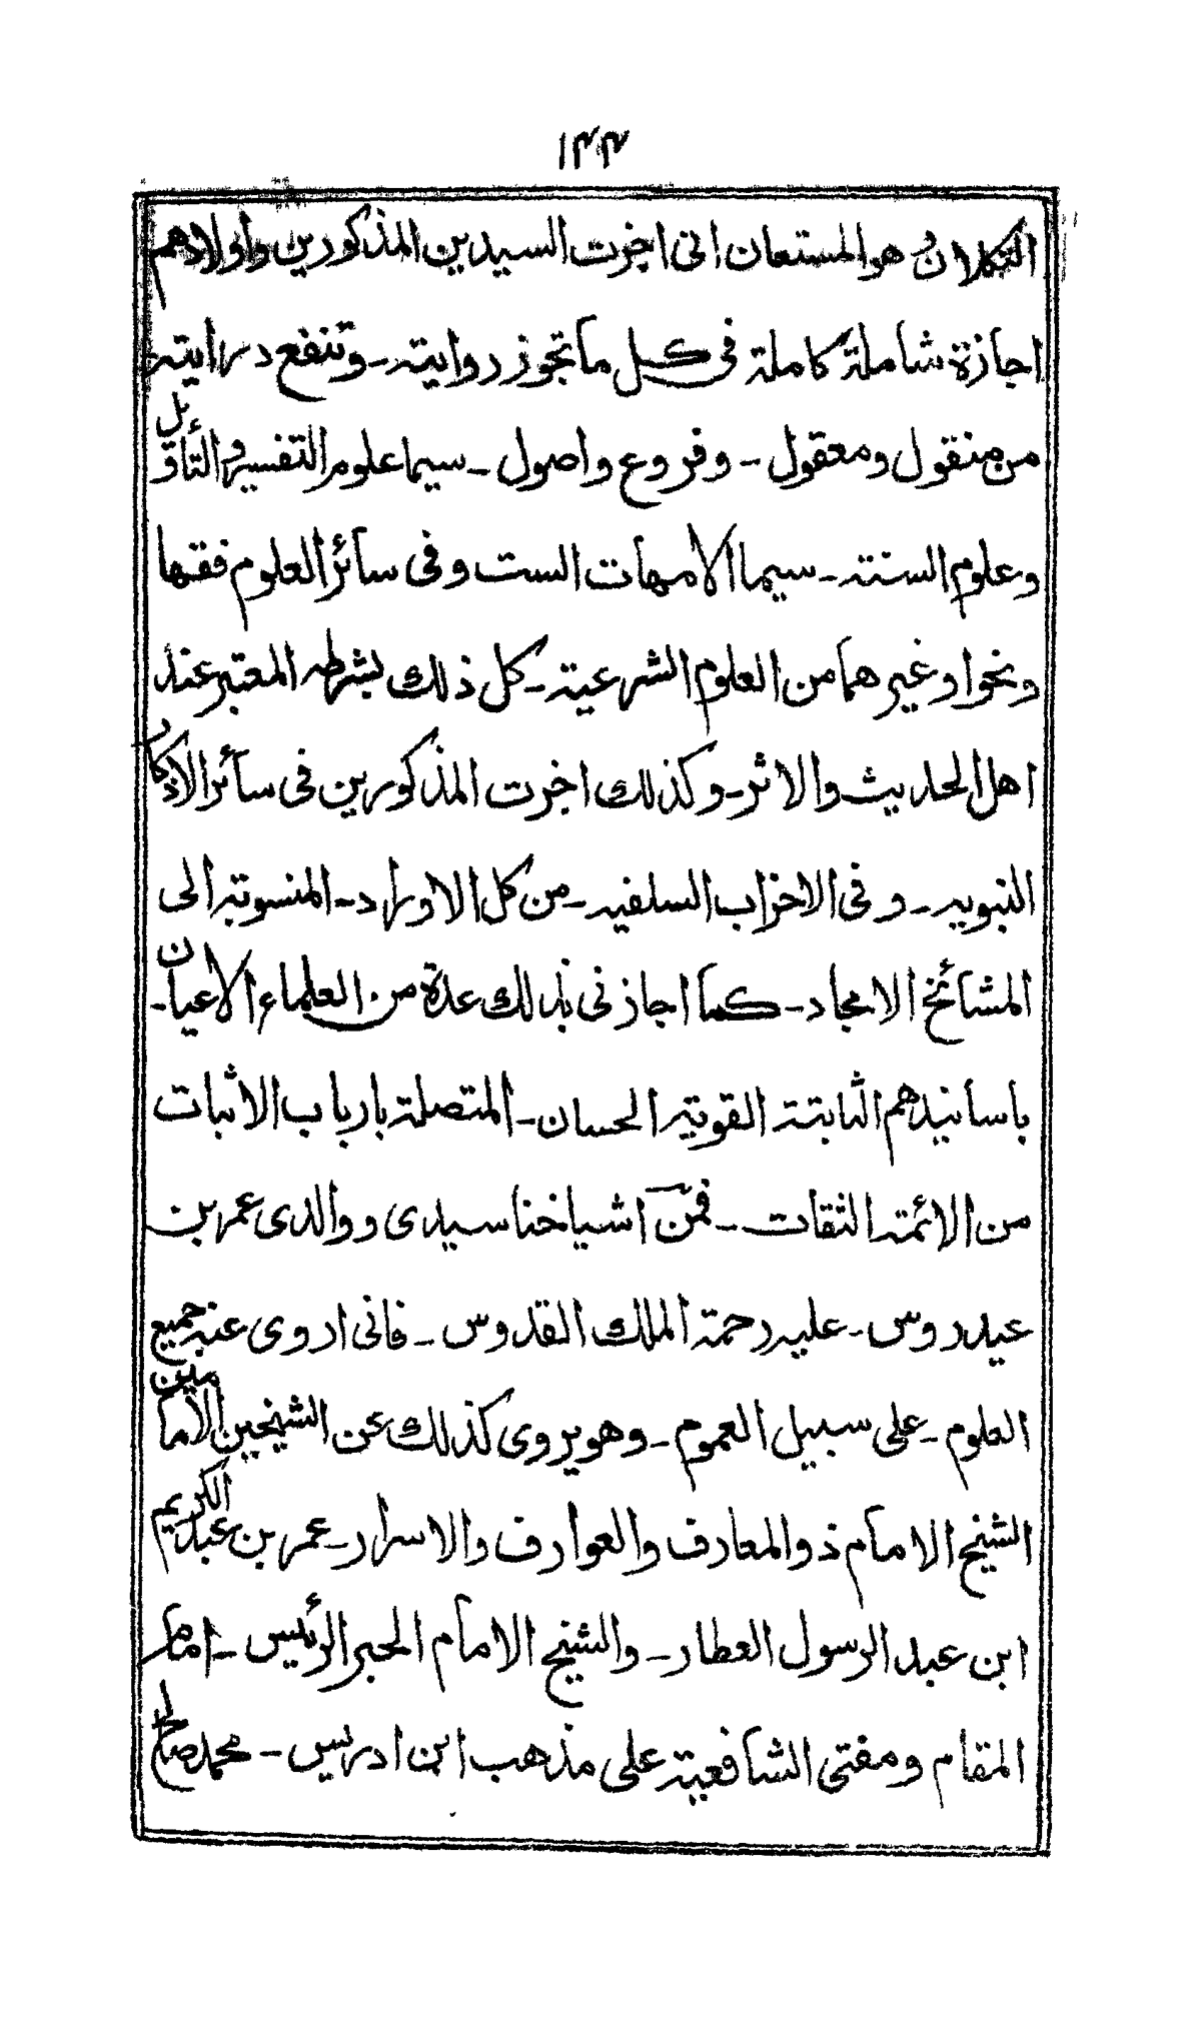 ١٣٣
التكلان هو المستعان انى اجزت السيدين المذكورين واولادهم
اجازة شاملة كاملة فى كل ما تجوز روايته ـ وتنفع درايته
من منقول ومعقول ـ وفروع واصول ـ سيما علوم التفسير والتأويل
وعلوم السنته ـ سيما الامهات الست وفى سائر العلوم فقها
ونحوا وغيرهما من العلوم الشرعية ـ كل ذلك بشرطه المعتبر عند
اهل الحديث والاثر ـ وكذلك اجزت المذكورين فى سائر الاذكار
النبويه ـ وفى الاحزاب السلفيه ـ من كل الاوراد ـ المنسوبته الى
المشائخ الامجاد ـ كما اجازنى بذلك عدة من العلماء الاعيان ـ
باسانيدهم الثابتة القويته الحسان ـ المتصلة بارباب الاثبات
من الائمته الثقات ـ فمن اشياخنا سيدى ووالدى عمر بن
عيدروس ـ عليه رحمة الملك القدوس ـ فانى اروى عنه جميع
العلوم ـ على سبيل العموم ـ وهو يروى كذلك عن الشيخين الامامين
الشيخ الامام ذو المعارف والعوارف والاسرار ـ عمر بن عبد الكريم
ابن عبد الرسول العطار ـ والشيخ الامام الحبر الرئيس ـ امام
المقام ومفتى الشافعية على مذهب ابن ادريس ـ محمد صالح